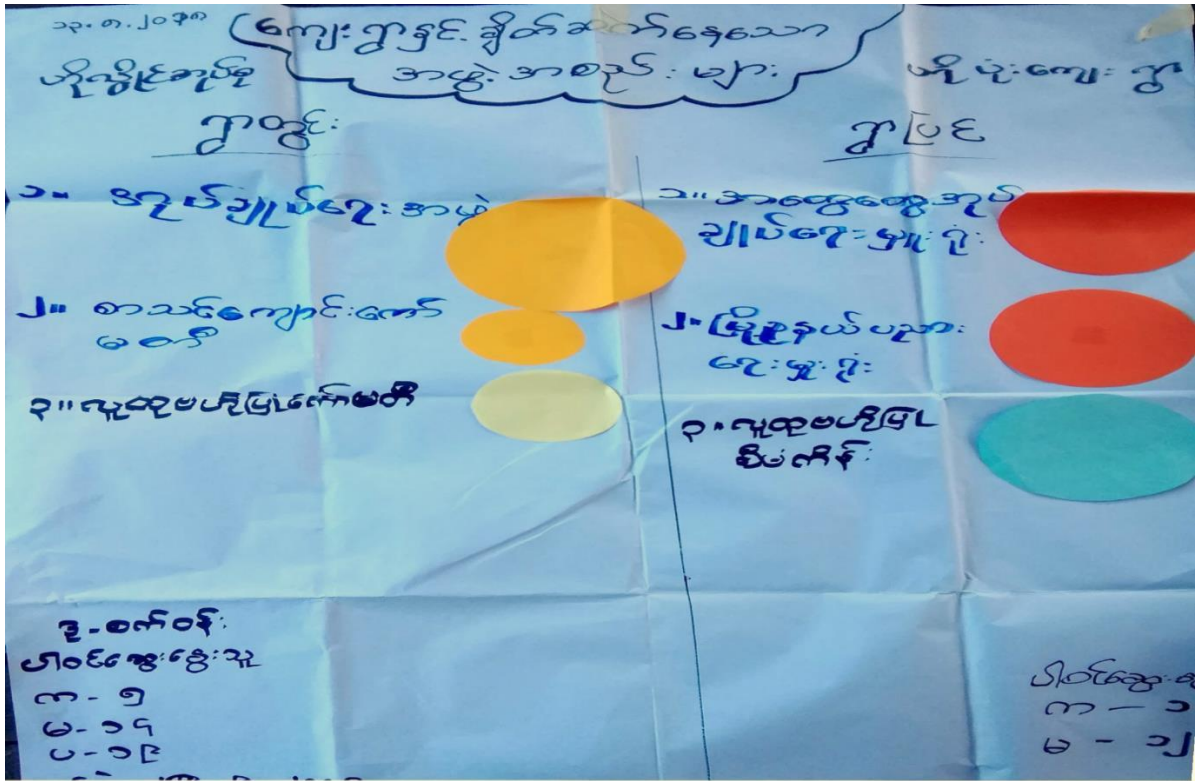 ၁၃.၈.၂၀၁၈
ကျေးရွာနှင့် ချိတ်ဆက်နေသော
အဖွဲ့အစည်းများ
ဟိုလှိုင်အုပ်စု
ဟိုပုံးကျေးရွာ
ရွာတွင်း
ရွာပြင်
၁။ အုပ်ချုပ်ရေးအဖွဲ့
၂။ စာသင်ကျောင်းကော်
မတီ
၃။ လူထုဗဟိုပြုကော်မတီ
၁။ အထွေထွေအုပ်
ချုပ်ရေးမှူးရုံး
၂။ မြို့နယ်ပညာ
ရေးမှူးရုံး
၃။ လူထုဗဟိုပြု
စီမံကိန်း
ဒု-စက်ဝန်း
ပါဝင်ဆွေးနွေးသူ
က - ၅
မ - ၁၄
ပ - ၁၉
ပါဝင်ဆွေး
က - ၁
မ - ၁၂